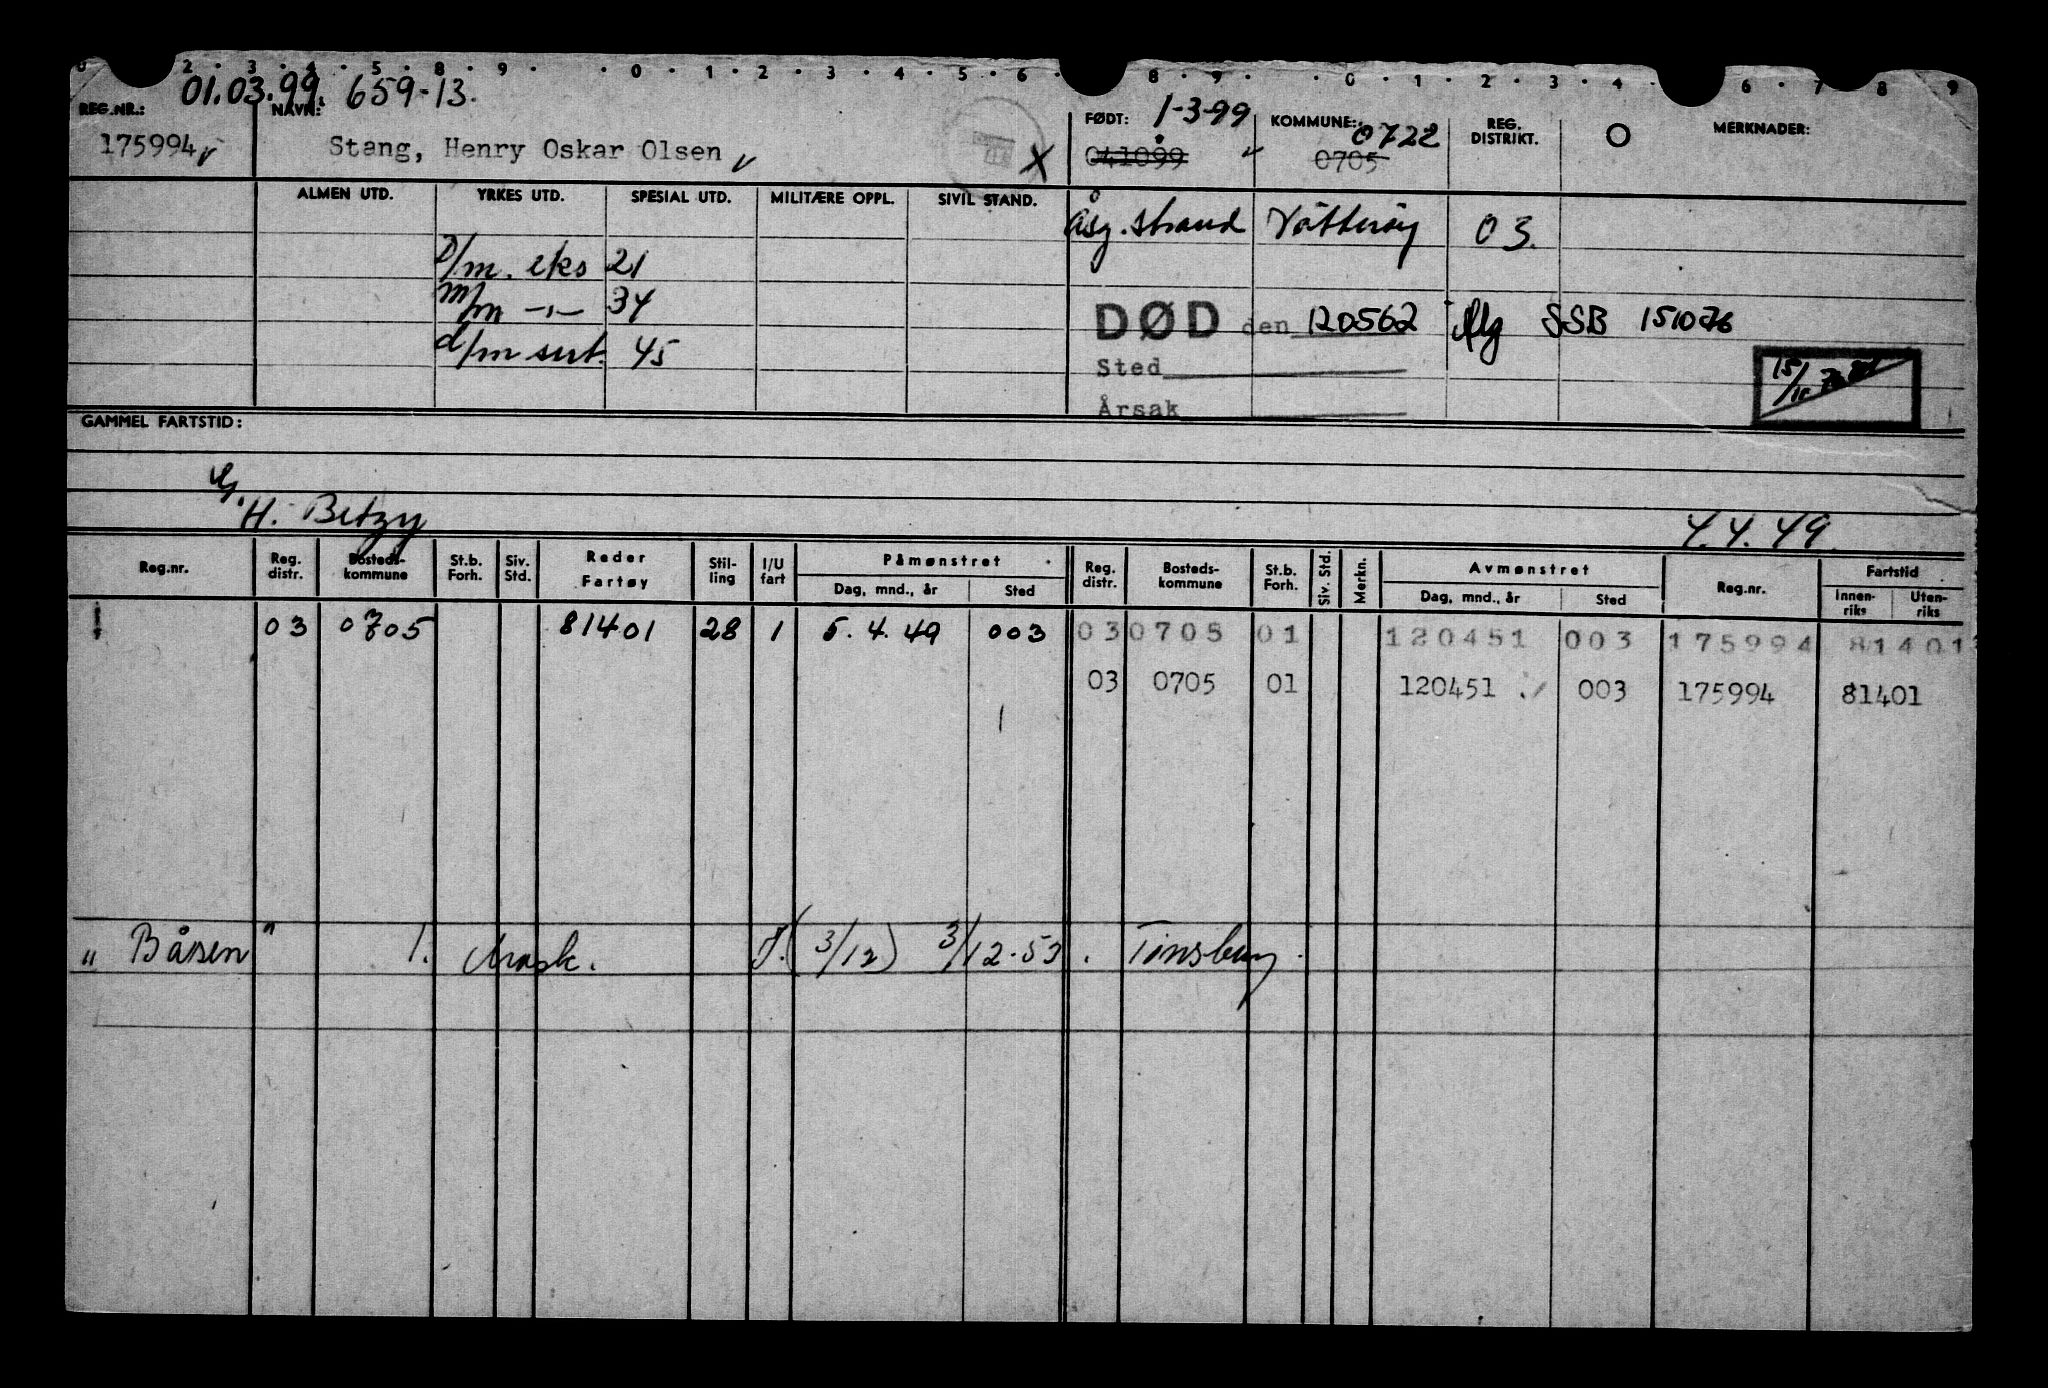 0 2 · 3 · 4 · 5 · 8 · 9 · · 0 · 1 · 2 · 3 · 4 · 5 · 6 · 8 · 9 · · 0 · 1 · 2 · 3 · 4 · 6 · 7 8 9
01.03.99. 659-13.
REG.NR.: NAVN: FØDT: 1-3-99 KOMMUNE: 0722 REG. DISTRIKT. O MERKNADER:
175994 Stang, Henry Oskar Olsen X 041099 0705
ALMEN UTD. YRKES UTD. SPESIAL UTD. MILITÆRE OPPL. SIVIL STAND.
Åsg.strand Nötteröy 03.
D/m. eks 21
m/m -"- 34
d/m sert. 45
DØD den 120562 SSB 151076
Sted
Årsak
15/10
GAMMEL FARTSTID:
H. Betzy 4.4.49.
Reg.nr. Reg. distr. Bosteds-kommune St.b. Forh. Siv. Std. Reder Fartøy Stil-ling I/U fart Påmønstret Dag, mnd., år Sted Reg. distr. Bosteds-kommune St.b. Forh. Siv. Std. Merkn. Avmønstret Dag, mnd., år Sted Reg.nr. Fartstid Innen-riks Uten-riks
03 0705 81401 28 1 5.4.49 003 03 0705 01 120451 003 175994 81401
03 0705 01 120451 003 175994 81401
" Båsen " 1. mask. (3/12) 3/12.53. Tönsberg.